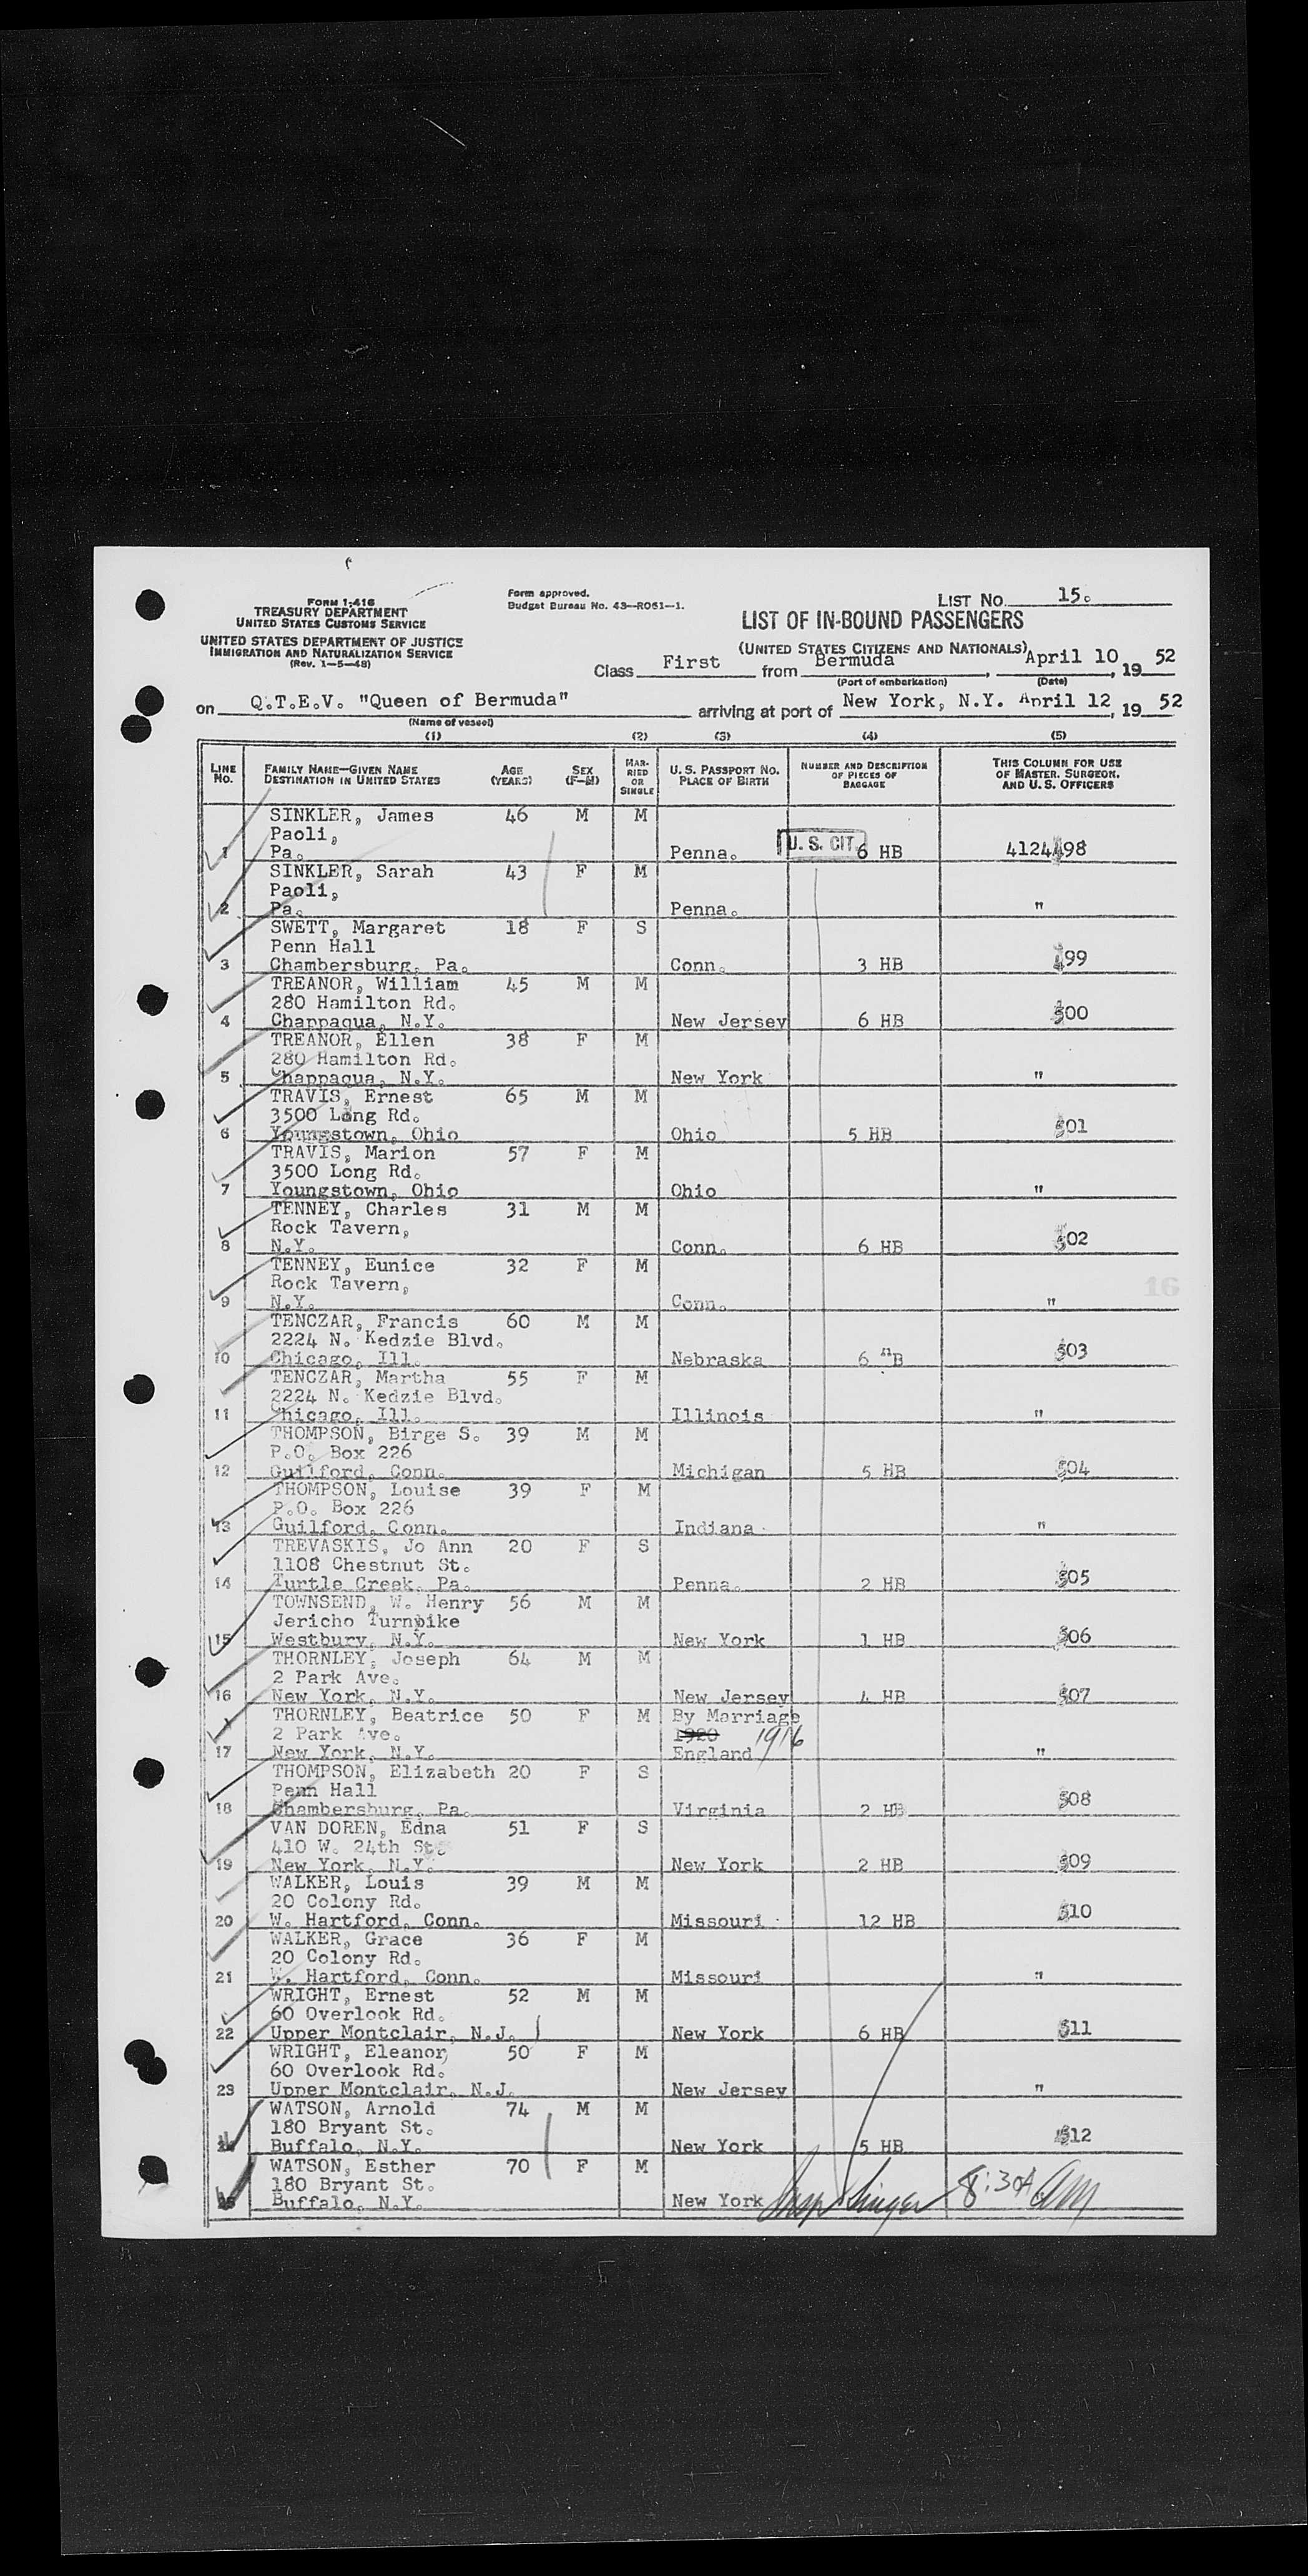 FORM 1-416
TREASURY DEPARTMENT
UNITED STATES CUSTOMS SERVICE
UNITED STATES DEPARTMENT OF JUSTICE
IMMIGRATION AND NATURALIZATION SERVICE
(Rev. 1-5-48)
Form approved.
Budget Bureau No. 43-R051-1.
LIST NO. 15.
LIST OF IN-BOUND PASSENGERS
(UNITED STATES CITIZENS AND NATIONALS)
Class First from Bermuda, April 10, 19 52
(Port of embarkation) (Date)
on Q.T.E.V. "Queen of Bermuda" arriving at port of New York, N.Y. April 12, 19 52
(Name of vessel)
(1) (2) (3) (4) (5)
LINE NO. FAMILY NAME—GIVEN NAME DESTINATION IN UNITED STATES AGE (YEARS) SEX (F—M) MARRIED OR SINGLE U.S. PASSPORT NO. PLACE OF BIRTH NUMBER AND DESCRIPTION OF PIECES OF BAGGAGE THIS COLUMN FOR USE OF MASTER, SURGEON, AND U.S. OFFICERS
SINKLER, James 46 M M
Paoli,
1 Pa. Penna. U. S. CIT. 6 HB 4124498
SINKLER, Sarah 43 F M
Paoli,
2 Pa. Penna. "
SWETT, Margaret 18 F S
Penn Hall
3 Chambersburg, Pa. Conn. 3 HB 499
TREANOR, William 45 M M
280 Hamilton Rd.
4 Chappaqua, N.Y. New Jersey 6 HB 500
TREANOR, Ellen 38 F M
280 Hamilton Rd.
5 Chappaqua, N.Y. New York "
TRAVIS, Ernest 65 M M
3500 Long Rd.
6 Youngstown, Ohio Ohio 5 HB 501
TRAVIS, Marion 57 F M
3500 Long Rd.
7 Youngstown, Ohio Ohio "
TENNEY, Charles 31 M M
Rock Tavern,
8 N.Y. Conn. 6 HB 502
TENNEY, Eunice 32 F M
Rock Tavern,
9 N.Y. Conn. "
16
TENCZAR, Francis 60 M M
2224 N. Kedzie Blvd.
10 Chicago, Ill. Nebraska 6 HB 503
TENCZAR, Martha 55 F M
2224 N. Kedzie Blvd.
11 Chicago, Ill. Illinois "
THOMPSON, Birge S. 39 M M
P.O. Box 226
12 Guilford, Conn. Michigan 5 HB 504
THOMPSON, Louise 39 F M
P.O. Box 226
13 Guilford, Conn. Indiana "
TREVASKIS, Jo Ann 20 F S
1108 Chestnut St.
14 Turtle Creek, Pa. Penna. 2 HB 505
TOWNSEND, W. Henry 56 M M
Jericho Turnpike
15 Westbury, N.Y. New York 1 HB 506
THORNLEY, Joseph 64 M M
2 Park Ave.
16 New York, N.Y. New Jersey 4 HB 507
THORNLEY, Beatrice 50 F M By Marriage
2 Park Ave. 1920 1916
17 New York, N.Y. England "
THOMPSON, Elizabeth 20 F S
Penn Hall
18 Chambersburg, Pa. Virginia 2 HB 508
VAN DOREN, Edna 51 F S
410 W. 24th St.
19 New York, N.Y. New York 2 HB 509
WALKER, Louis 39 M M
20 Colony Rd.
20 W. Hartford, Conn. Missouri 12 HB 510
WALKER, Grace 36 F M
20 Colony Rd.
21 W. Hartford, Conn. Missouri "
WRIGHT, Ernest 52 M M
60 Overlook Rd.
22 Upper Montclair, N.J. New York 6 HB 511
WRIGHT, Eleanor 50 F M
60 Overlook Rd.
23 Upper Montclair, N.J. New Jersey "
WATSON, Arnold 74 M M
180 Bryant St.
24 Buffalo, N.Y. New York 5 HB 512
WATSON, Esther 70 F M
180 Bryant St.
25 Buffalo, N.Y. New York Insp Singer 8:30A